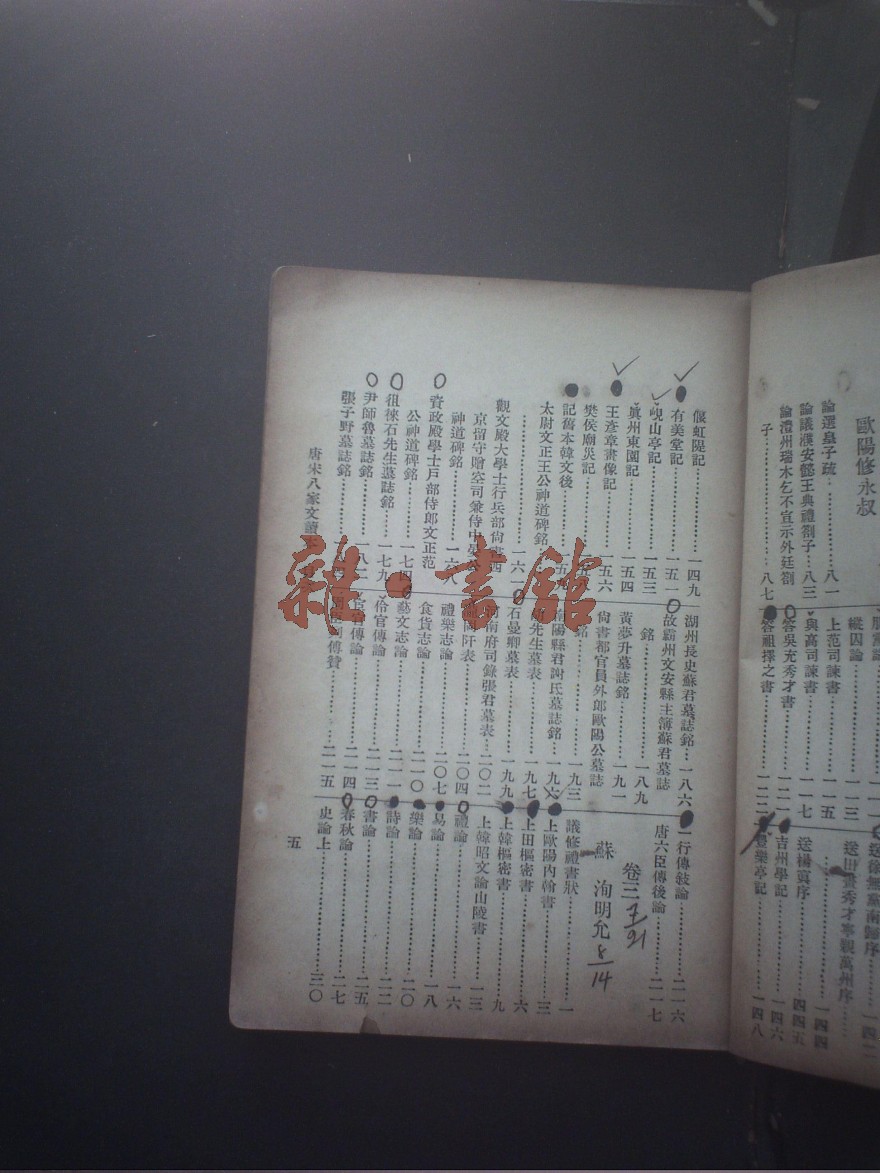 歐陽修永叔
論選皇子疏……八一
論議濮安懿王典禮劄子……八三
論澧州瑞木乞不宣示外廷劄
子……八七
縱囚論……一一三
上范司諫書……一一五
與高司諫書……一一七
答吳充秀才書……一二一
答祖擇之書……一二二
送徐無黨南歸序
送田畫秀才寧親萬州序
……一四四
送楊寘序
吉州學記……一四六
豐樂亭記……一四八
偃虹隄記……一四九
有美堂記……一五一
峴山亭記……一五三
眞州東園記……一五四
王彥章畫像記……一五六
樊侯廟災記
記舊本韓文後
太尉文正王公神道碑銘
……一六一
觀文殿大學士行兵部尙書西
京留守贈空司兼侍中晏公
神道碑銘……一六八
資政殿學士戶部侍郎文正范
公神道碑銘……一七四
徂徠石先生墓誌銘……一七九
尹師魯墓誌銘……一八二
張子野墓誌銘
湖州長史蘇君墓誌銘……一八六
故霸州文安縣主簿蘇君墓誌
銘……一八九
黃夢升墓誌銘……一九一
尙書都官員外郎歐陽公墓誌
銘……一九三
南陽縣君謝氏墓誌銘……一九六
先生墓表……一九七
石曼卿墓表……一九九
河南府司錄張君墓表……二〇二
岡阡表……二〇四
禮樂志論……二〇七
食貨志論……二一〇
藝文志論……二一一
伶官傳論……二一三
宦者傳論……二一四
傳贊……二一五
一行傳敍論……二一六
唐六臣傳後論……二一七
卷三
7/21
蘇洵明允
8/14
議修禮書狀……一
上歐陽內翰書……三
上田樞密書……六
上韓樞密書……九
上韓昭文論山陵書……一三
禮論……一六
易論……一八
樂論……二〇
詩論……二二
書論……二五
春秋論……二七
史論上……三〇
唐宋八家文讀
五
雜·書館